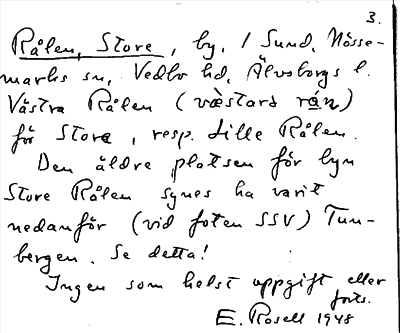 3.
Rålen, Store, by, i Sund, Nösse-
marks sn, Vedbo hd, Älvsborgs l.
Västra Rålen (væ̀stard rán)
för Store, resp. Lille Rålen.
Den äldre platsen för byn
Store Rålen synes ha varit
nedanför (vid foten SSV) Tun-
bergen. Se detta!
Ingen som helst uppgift eller
forts.
E. Rosell 1948